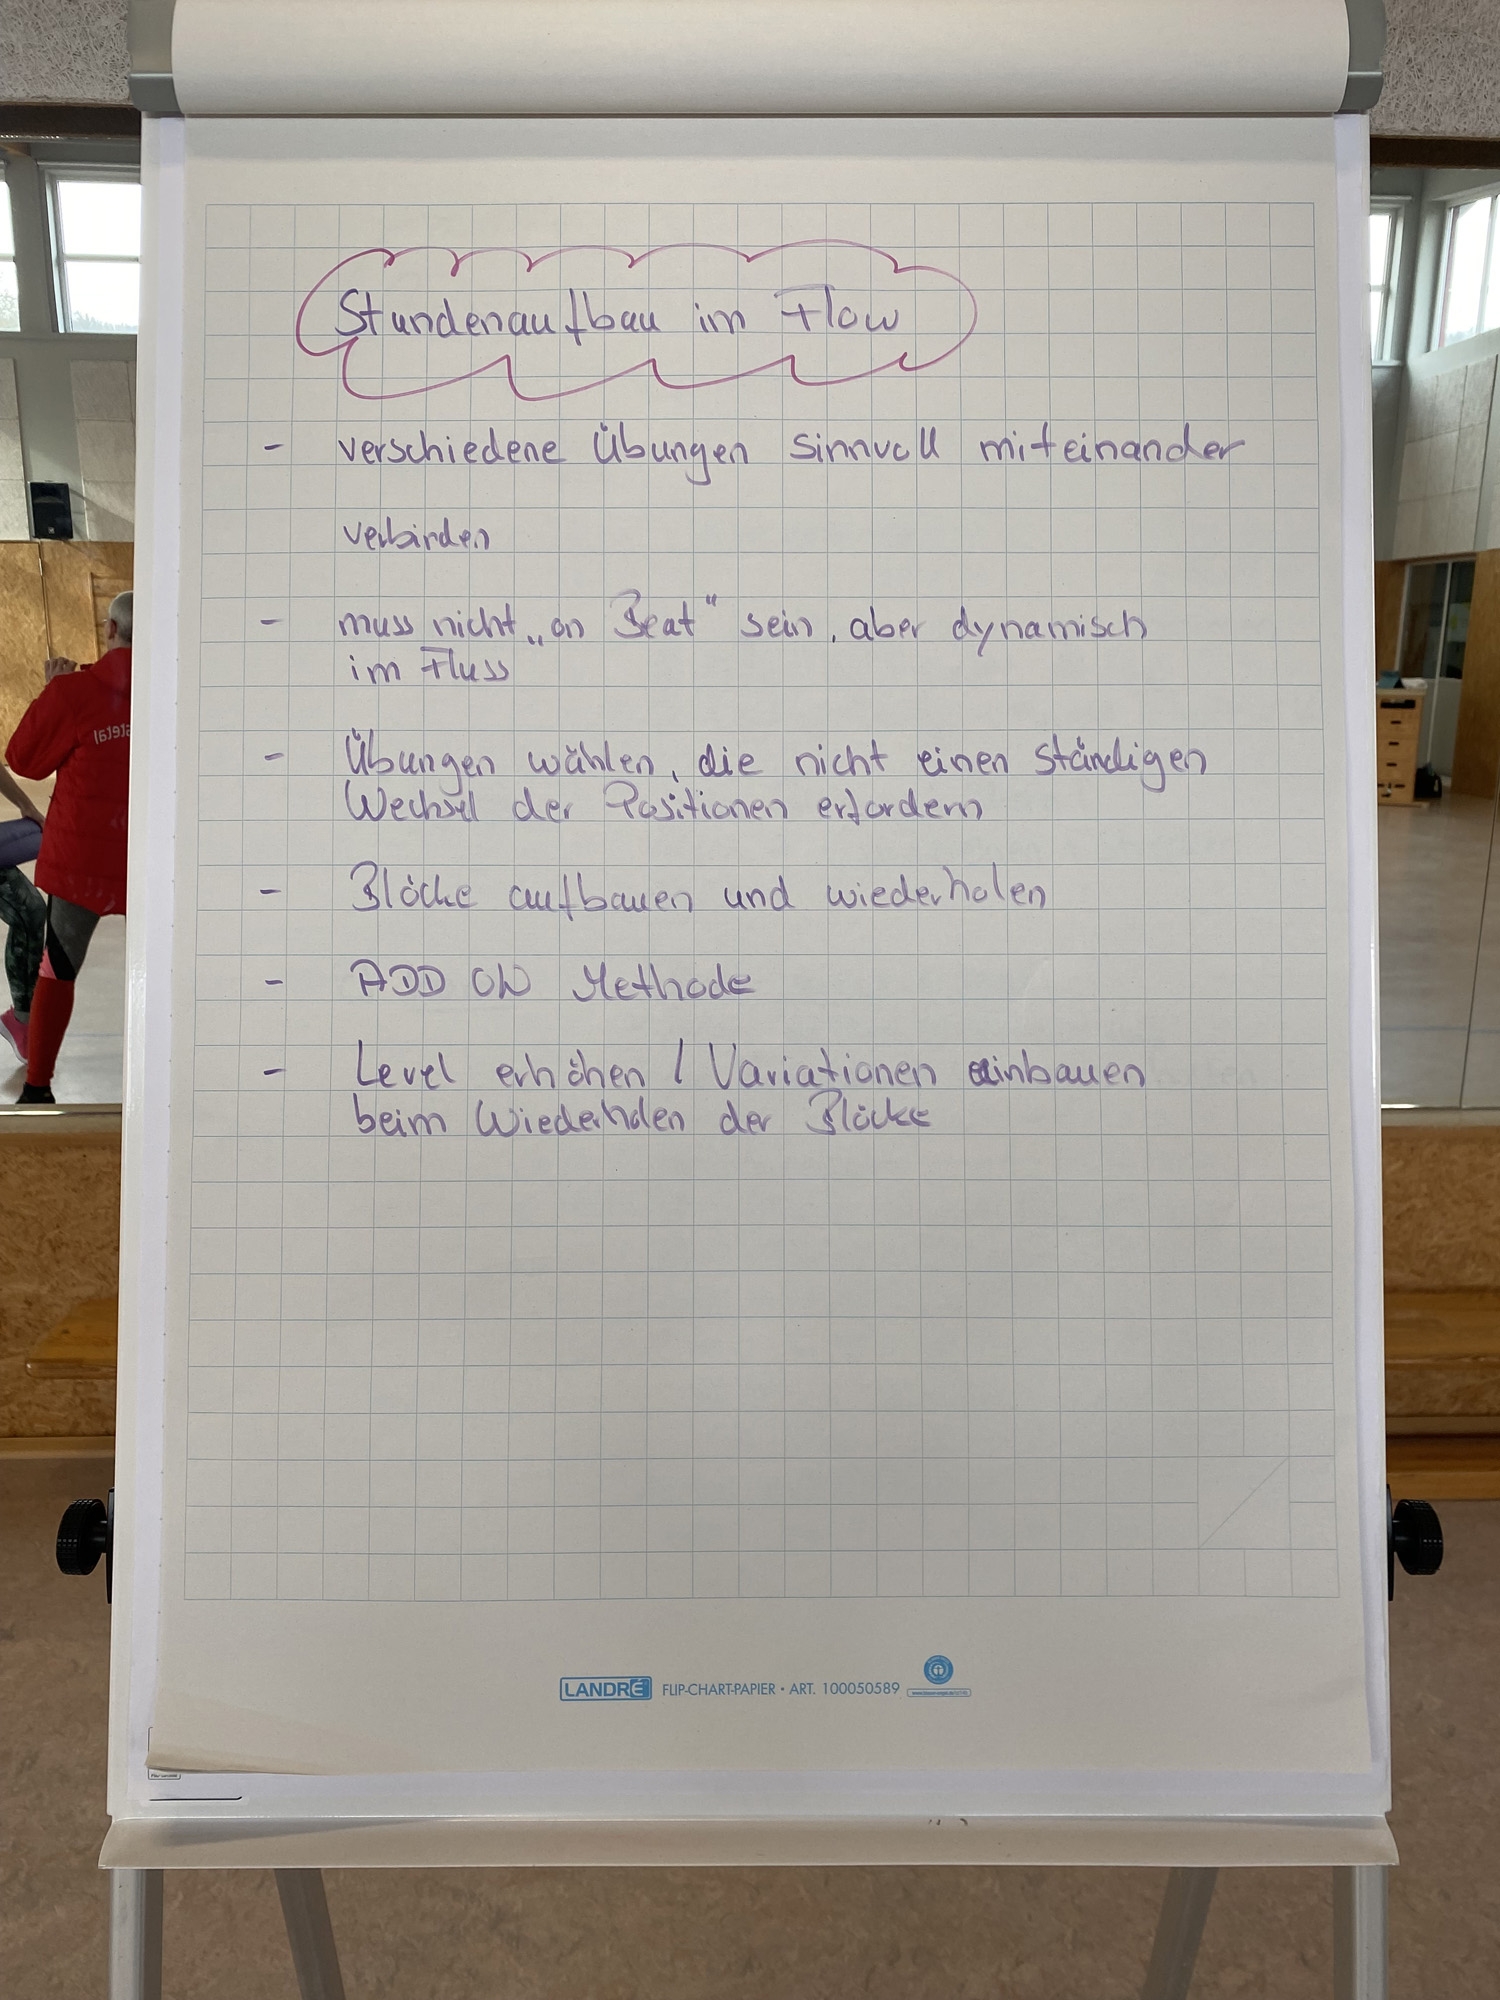 Stundenaufbau im Flow
- verschiedene Übungen sinnvoll miteinander
verbinden
- muss nicht „on Beat" sein, aber dynamisch
im Fluss
- Übungen wählen, die nicht einen ständigen
Wechsel der Positionen erfordern
- Blöcke aufbauen und wiederholen
- ADD ON Methode
- Level erhöhen / Variationen einbauen
beim Wiederholen der Blöcke
LANDRÉ FLIP-CHART-PAPIER • ART. 100050589